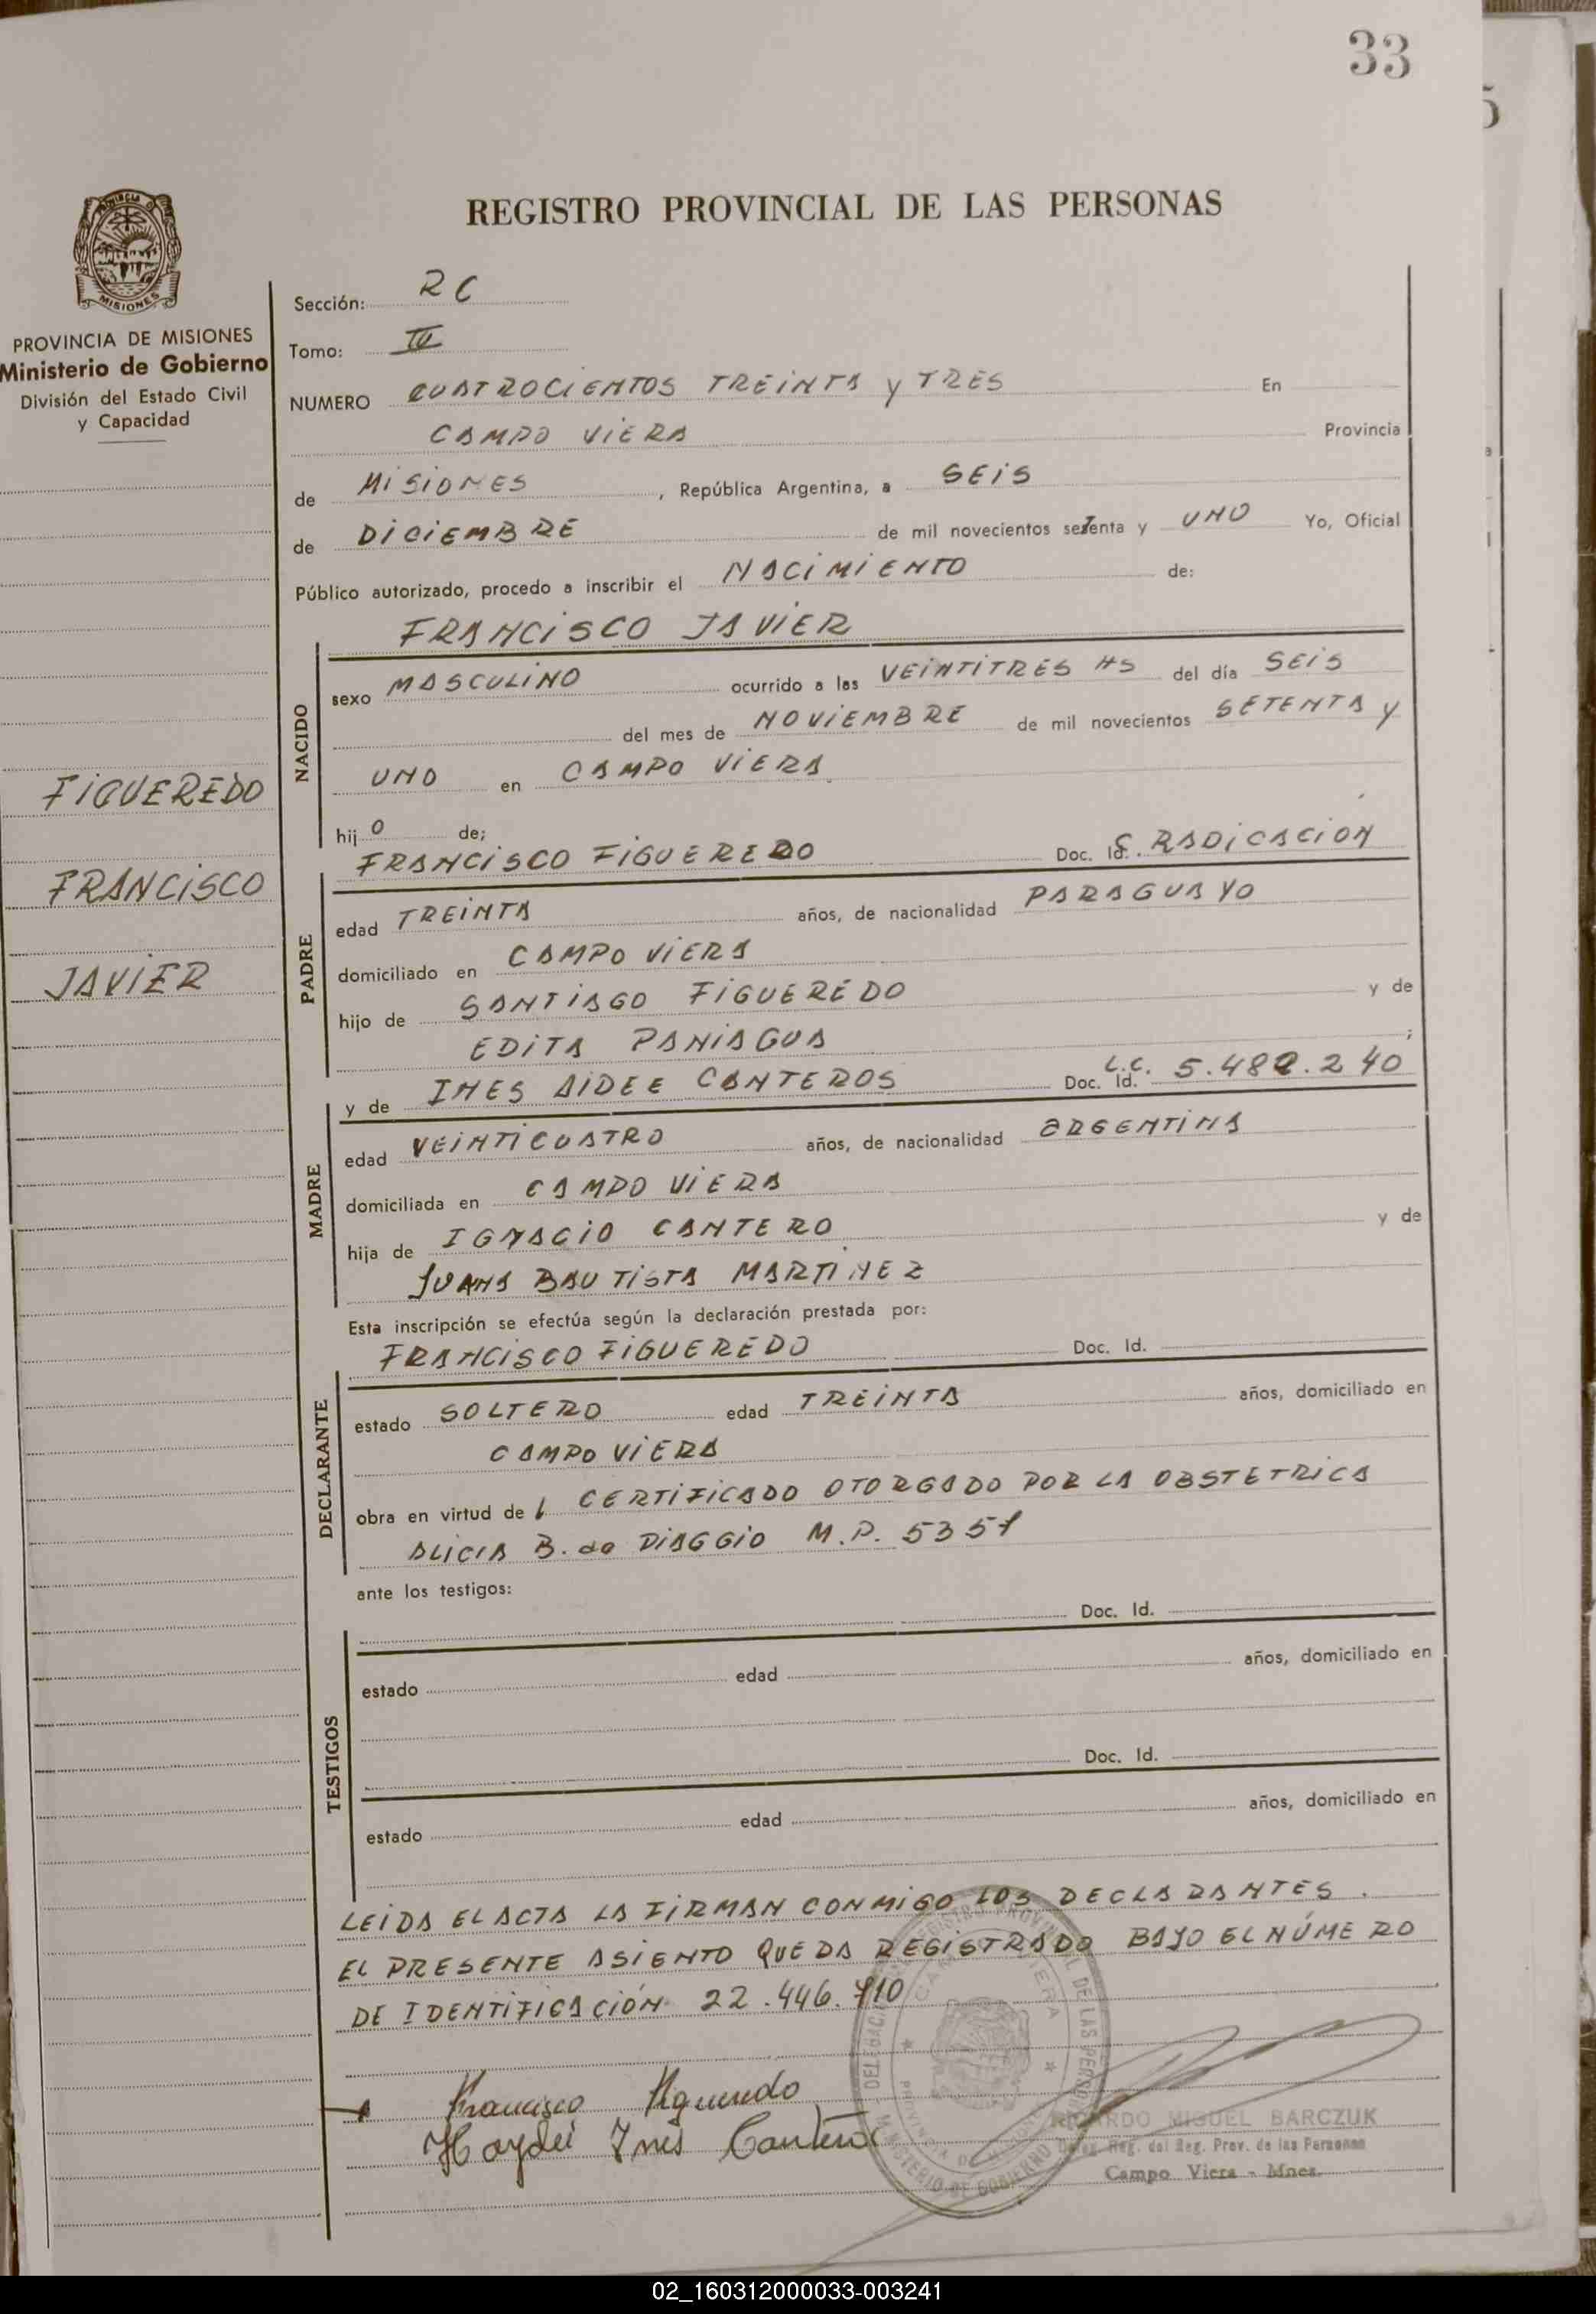 33
REGISTRO PROVINCIAL DE LAS PERSONAS
MISIONES
PROVINCIA DE MISIONES
Ministerio de Gobierno
División del Estado Civil
y Capacidad
FIGUEREDO
FRANCISCO
JAVIER
Sección: RC
Tomo:
NUMERO CUATROCIENTOS TREINTA y TRES En
CAMPO VIERA Provincia
de MISIONES , República Argentina, a SEIS
de DICIEMBRE de mil novecientos setenta y UNO Yo, Oficial
Público autorizado, procedo a inscribir el NACIMIENTO de:
FRANCISCO JAVIER
NACIDO
sexo MASCULINO ocurrido a las VEINTITRES HS del día SEIS
del mes de NOVIEMBRE de mil novecientos SETENTA y
UNO en CAMPO VIERA
hij O de;
FRANCISCO FIGUEREDO Doc. Id. C. RADICACION
PADRE
edad TREINTA años, de nacionalidad PARAGUAYO
domiciliado en CAMPO VIERA
hijo de SANTIAGO FIGUEREDO y de
EDITA PANIAGUA ;
y de INES AIDEE CANTEROS Doc. Id. L.C. 5.482.240
MADRE
edad VEINTICUATRO años, de nacionalidad ARGENTINA
domiciliada en CAMPO VIERA
hija de IGNACIO CANTERO y de
JUANA BAUTISTA MARTINEZ
Esta inscripción se efectúa según la declaración prestada por:
FRANCISCO FIGUEREDO Doc. Id.
DECLARANTE
estado SOLTERO edad TREINTA años, domiciliado en
CAMPO VIERA
obra en virtud de l CERTIFICADO OTORGADO POR LA OBSTETRICA
ALICIA B. de PIAGGIO M.P. 5351
ante los testigos:
Doc. Id.
TESTIGOS
estado edad años, domiciliado en
Doc. Id.
estado edad años, domiciliado en
LEIDA EL ACTA LA FIRMAN CONMIGO LOS DECLARANTES.
EL PRESENTE ASIENTO QUEDA REGISTRADO BAJO EL NÚMERO
DE IDENTIFICACIÓN 22.446.710
Francisco Figueredo
Haydeé Ines Cantero
RICARDO MIGUEL BARCZUK
Deleg. Reg. del Reg. Prov. de las Personas
Campo Viera - Mnes.
02_160312000033-003241